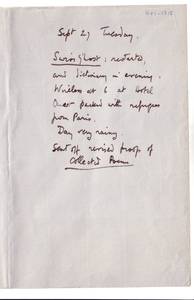 Sept 27 Tuesday.
Swiss Ghost: restarted,
and dictionary in evening.
Wireless at 6 at Hotel
Ouest packed with refugees
from Paris.
Day very rainy
Sent off revised proof of
Collected Poems